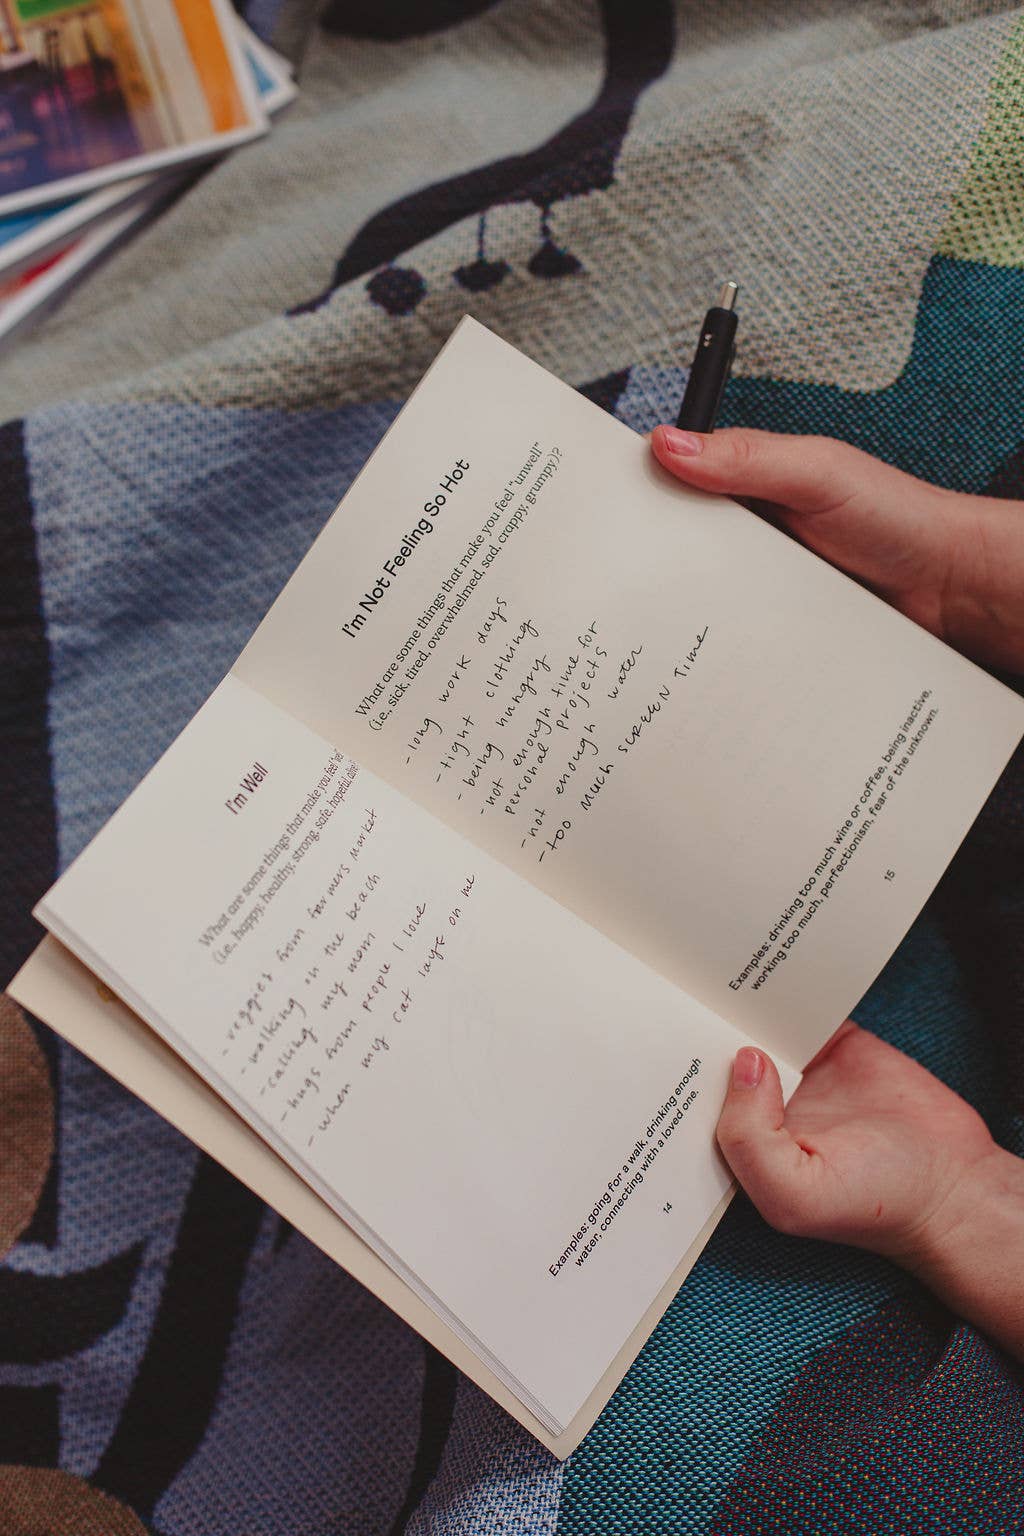 I'm Well
What are some things that make you feel "well"
(i.e., happy, healthy, strong, safe, hopeful, alive)?
- veggies from farmers market
- walking on the beach
- calling my mom
- hugs from people I love
- when my cat lays on me
Examples: going for a walk, drinking enough
water, connecting with a loved one.
14
I'm Not Feeling So Hot
What are some things that make you feel "unwell"
(i.e., sick, tired, overwhelmed, sad, crappy, grumpy)?
- long work days
- tight clothing
- being hungry
- not enough time for
personal projects
- not enough water
- too much screen time
Examples: drinking too much wine or coffee, being inactive,
working too much, perfectionism, fear of the unknown.
15